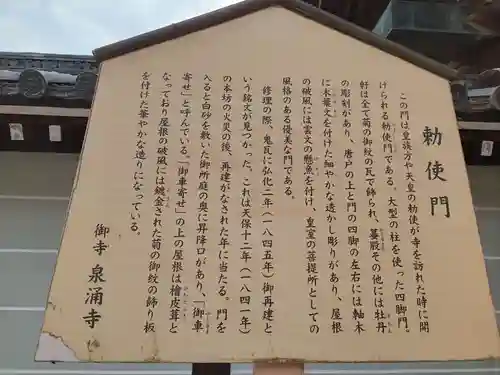 勅使門
この門は皇族方や天皇の勅使が寺を訪れた時に開
けられる勅使門である。大型の柱を使った四脚門。
軒は全て菊の御紋の瓦で飾られ、蟇股その他には牡丹
の彫刻があり、唐戸の上と門の四脚の左右には軸木
に木葉文を付けた細やかな透かし彫りがあり、屋根
の破風には雲文の懸魚を付け、皇室の菩提所としての
風格のある優美な門である。
修理の際、鬼瓦に弘化二年(一八四五年)御再建と
いう銘文が見つかった。これは天保十二年(一八四一年)
の本坊の火災の後、再建がなされた年に当たる。門を
入ると白砂を敷いた御所庭の奥に昇降口があり、「御車
寄せ」と呼んでいる。「御車寄せ」の上の屋根は檜皮葺と
なっており屋根の破風には鍍金された菊の御紋の飾り板
を付けた華やかな造りになっている。
御寺 泉涌寺